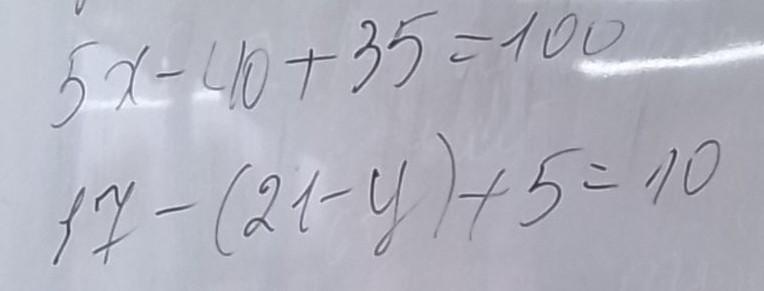 5x-40+35=100
17-(21-y)+5=10